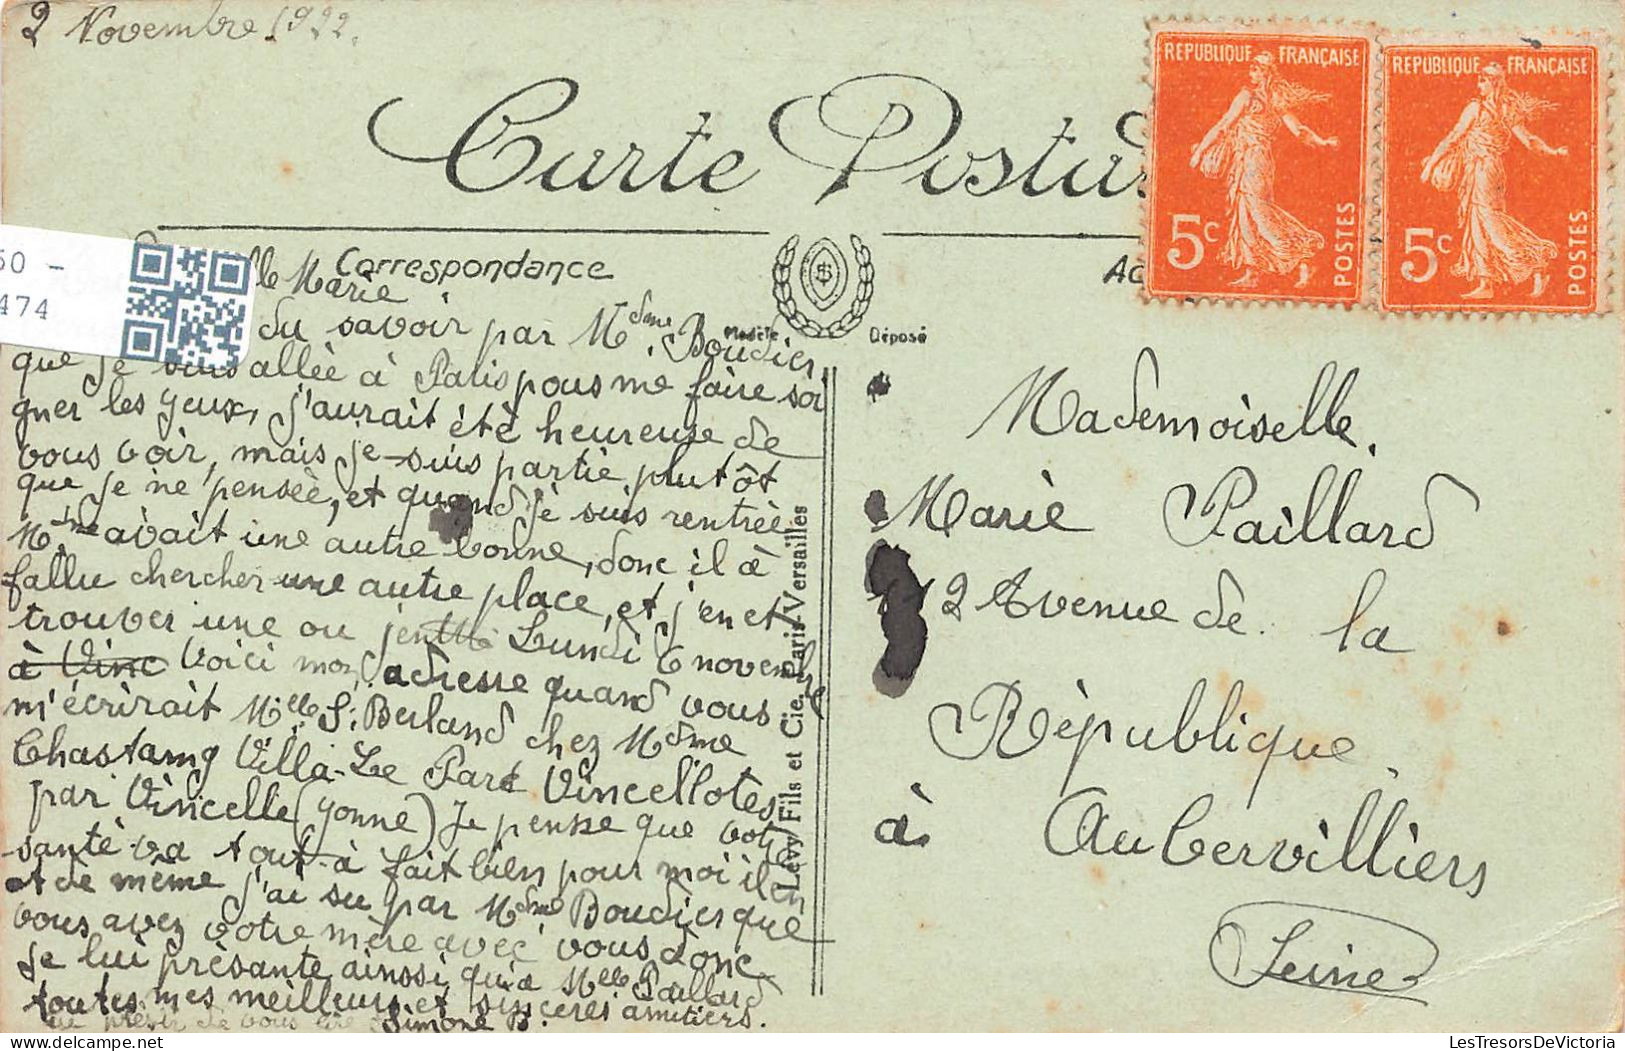 2 Novembre 1922.
Carte Posta
REPUBLIQUE FRANÇAISE
5c
POSTES
REPUBLIQUE FRANÇAISE
5c
POSTES
60 -
474
Correspondance
Modèle
Déposé
lle Marie
du savoir par Mdme Boudier
que je suis allée à Paris pous me faire soi
gner les yeux, j'aurait étè heureuse de
vous voir, mais je suis partie plutôt
que je ne pensée, et quand je suis rentrée
Mdme avait une autre bonne, donc il à
fallu chercher une autre place, et j'en et
trouver une ou Lundi 6 novembre
à Vinc Voici mon adresse quand vous
m'écrirait Melle S. Berland chez Mdme
Chastamg Villa-Le Parc Vincellotes
par Vincelle (Yonne) Je pense que votre
santè va tout à fait bien pour moi il en
et de même j'ai su par Mdme Boudier que
vous avez votre mère avec vous donc
je lui prèsante ainssi qu'a Melle Paillard
toutes mes meilleurs et sincères amitiers.
Simone B.
Lévy Fils et Cie. Paris-Versailles
Mademoiselle.
Marie Paillard
2 Avenue de la
Rèpublique.
à Aubervilliers
Seine
LesTresorsDeVictoria